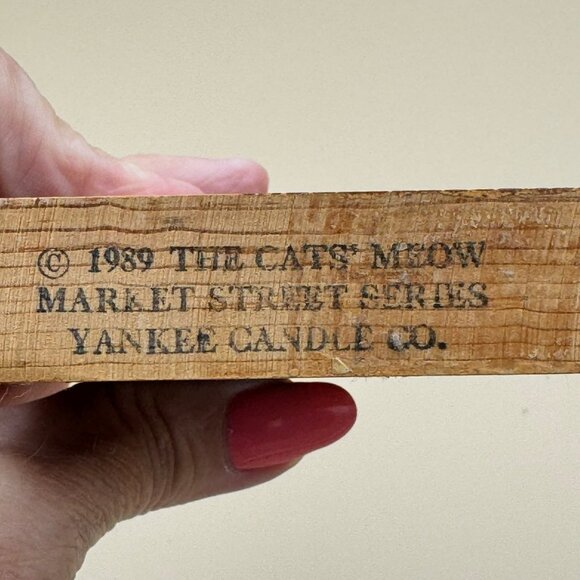 © 1989 THE CATS' MEOW
MARKET STREET SERIES
YANKEE CANDLE CO.